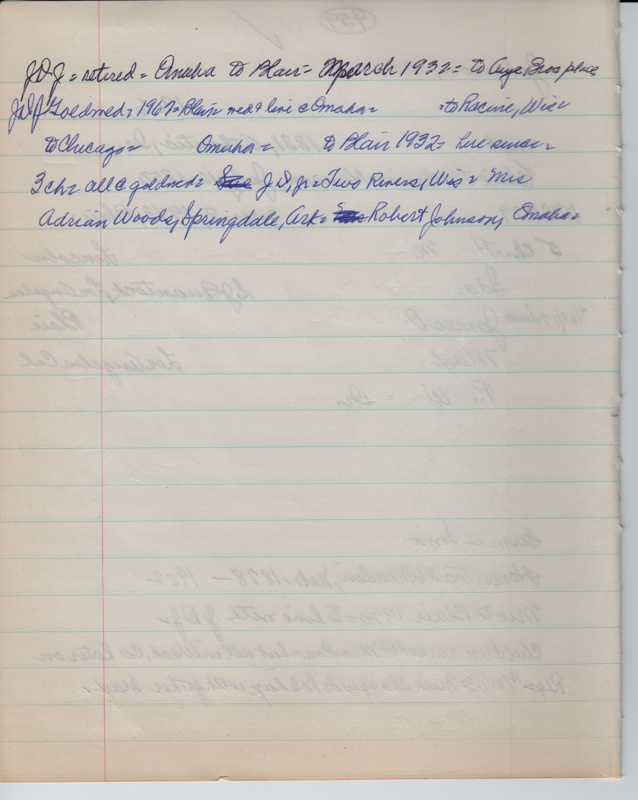 J.D.J = retired = Omaha to Blair = March 1932 = to Bros place
JDJ Goldwed = 1967 = Blair = wed & live c Omaha = to Racine, Wisc
to Chicago = Omaha = to Blair 1932 = here since =
3 ch = all c goldwed = J.D, jr = Two Rivers, Wis = Mrs
Adrian Woods, Springdale, Ark = Robert Johnson, Omaha =